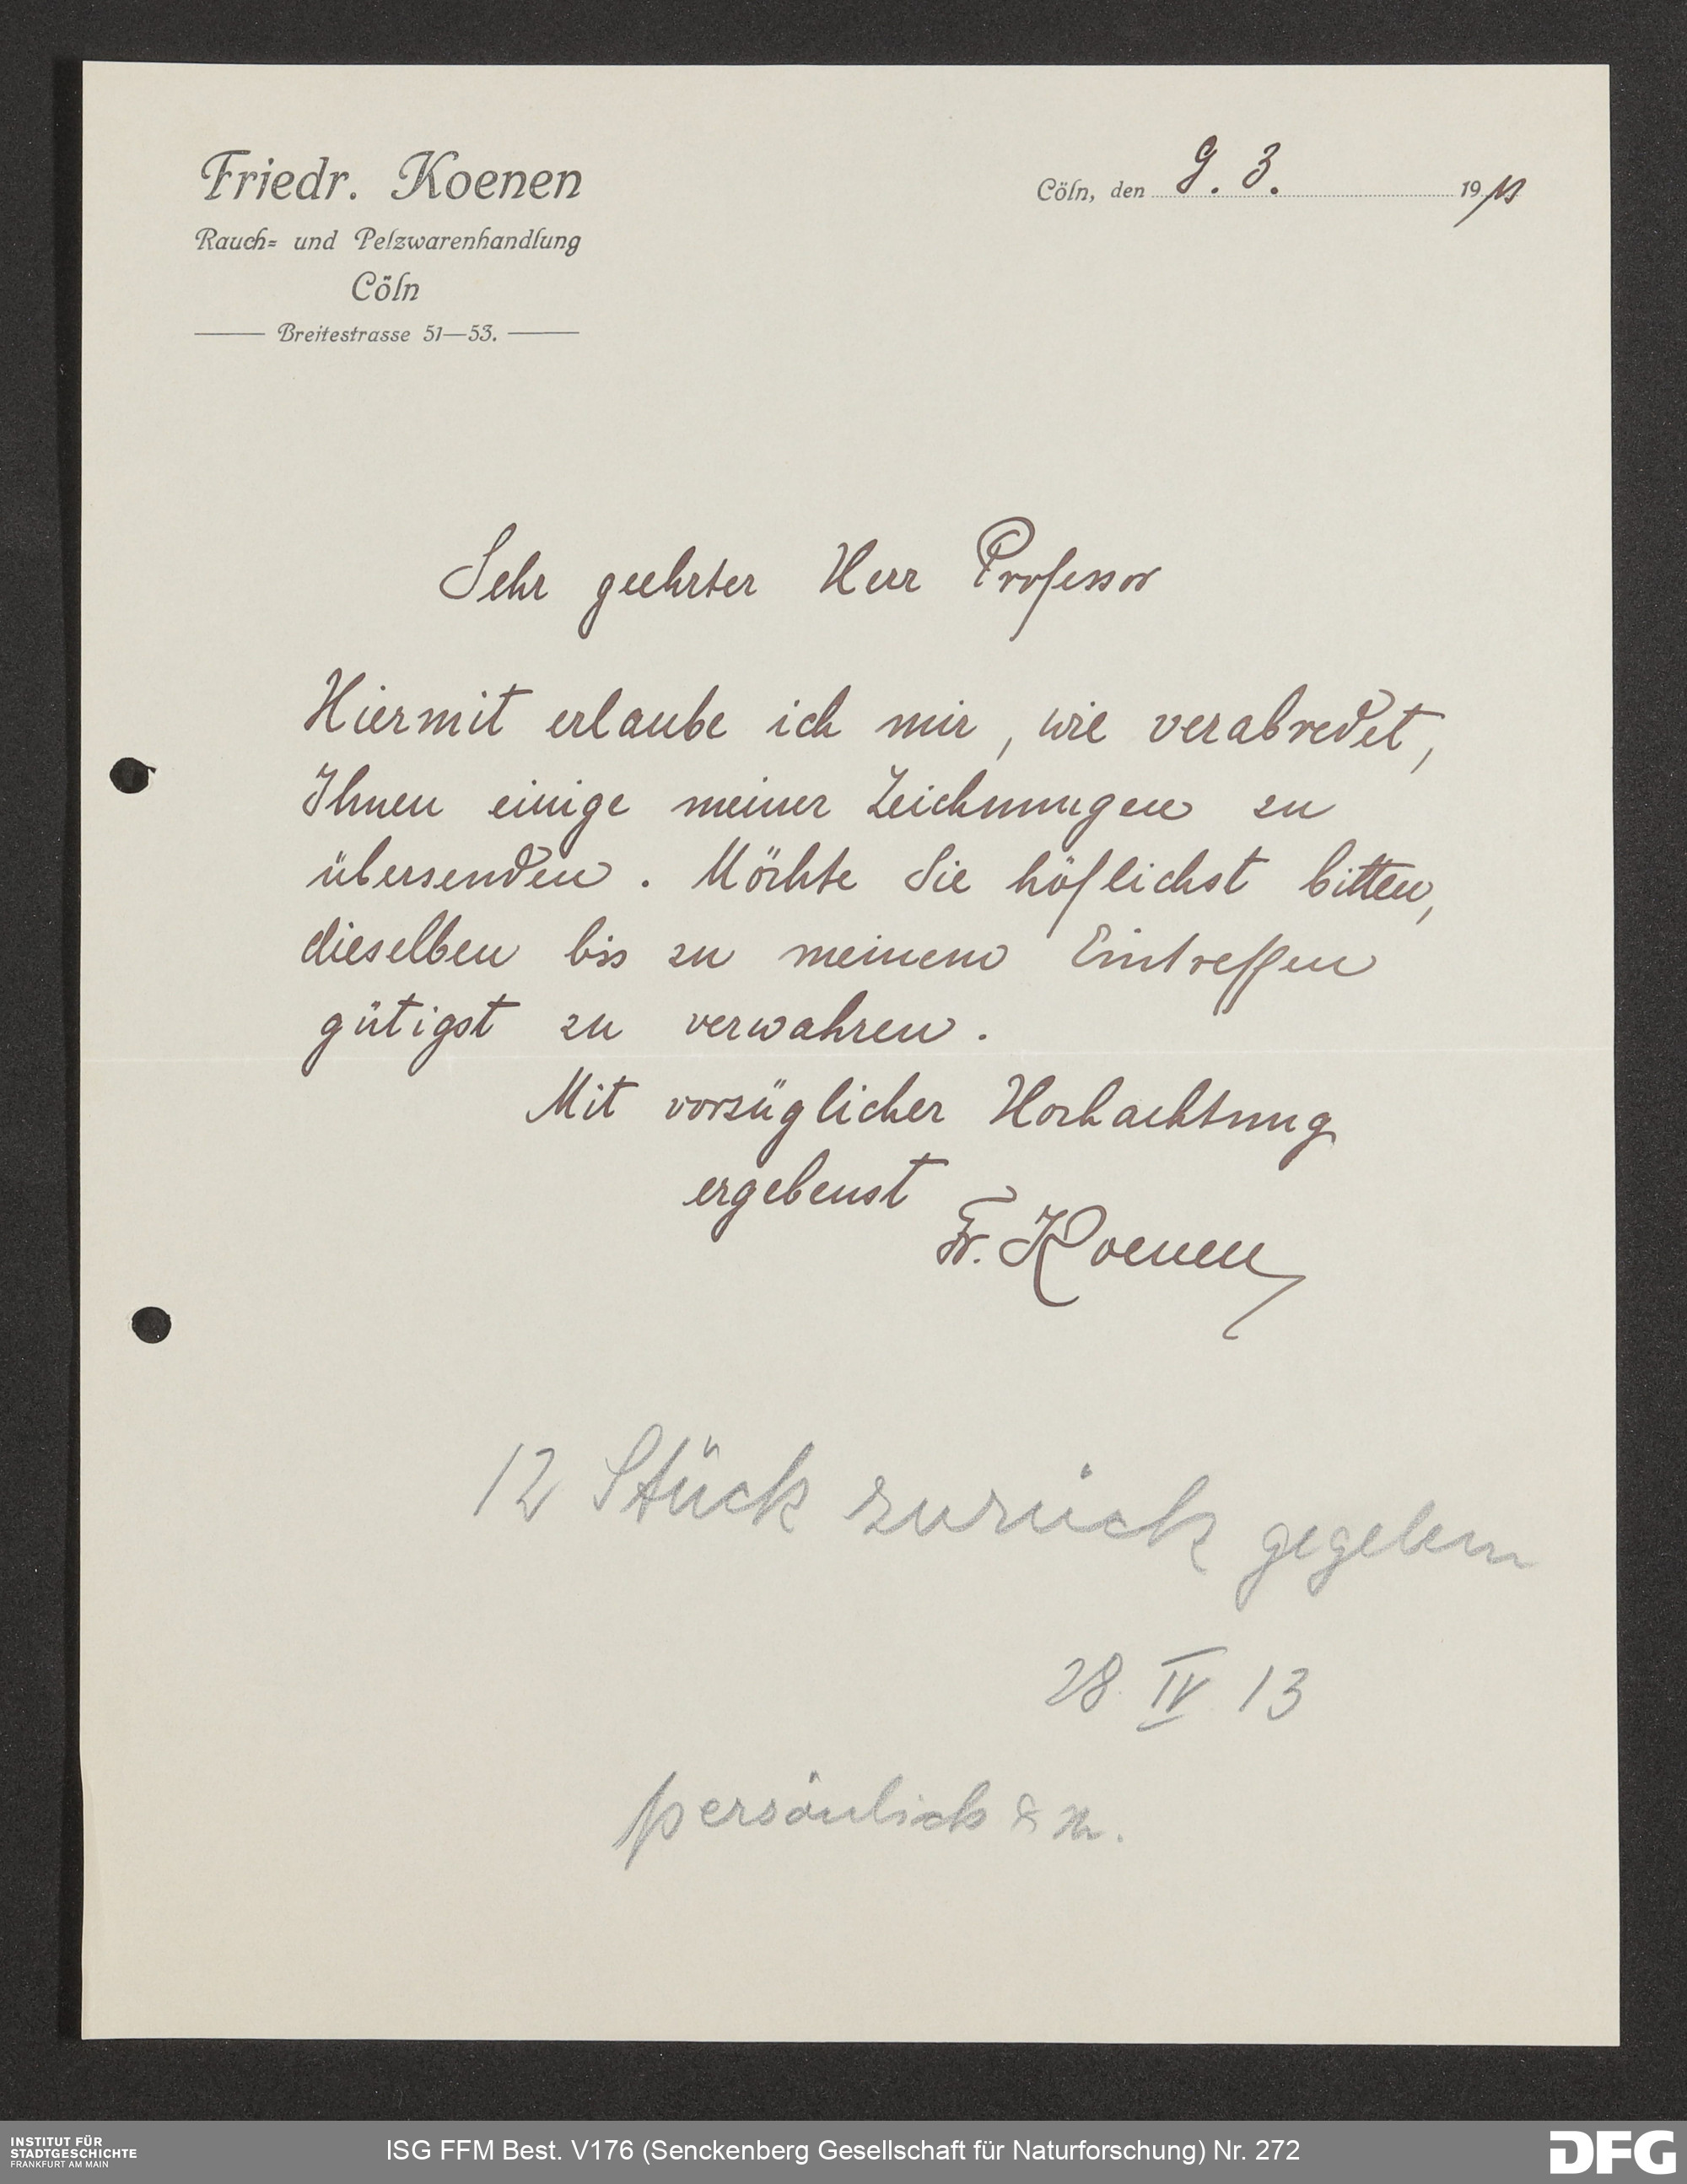 Friedr. Koenen
Rauch= und Pelzwarenhandlung
Cöln
Breitestrasse 51—53.
Cöln, den 9. 3. 1913
Sehr geehrter Herr Professor
Hiermit erlaube ich mir, wie verabredet,
Ihnen einige meiner Zeichnungen zu
übersenden. Möchte Sie höflichst bitten,
dieselben bis zu meinem Eintreffen
gütigst zu verwahren.
Mit vorzüglicher Hochachtung
ergebenst
Fr. Koenen
12 Stück zurück gegeben
28. IV 13
persönlich
INSTITUT FÜR
STADTGESCHICHTE
FRANKFURT AM MAIN
ISG FFM Best. V176 (Senckenberg Gesellschaft für Naturforschung) Nr. 272
DFG